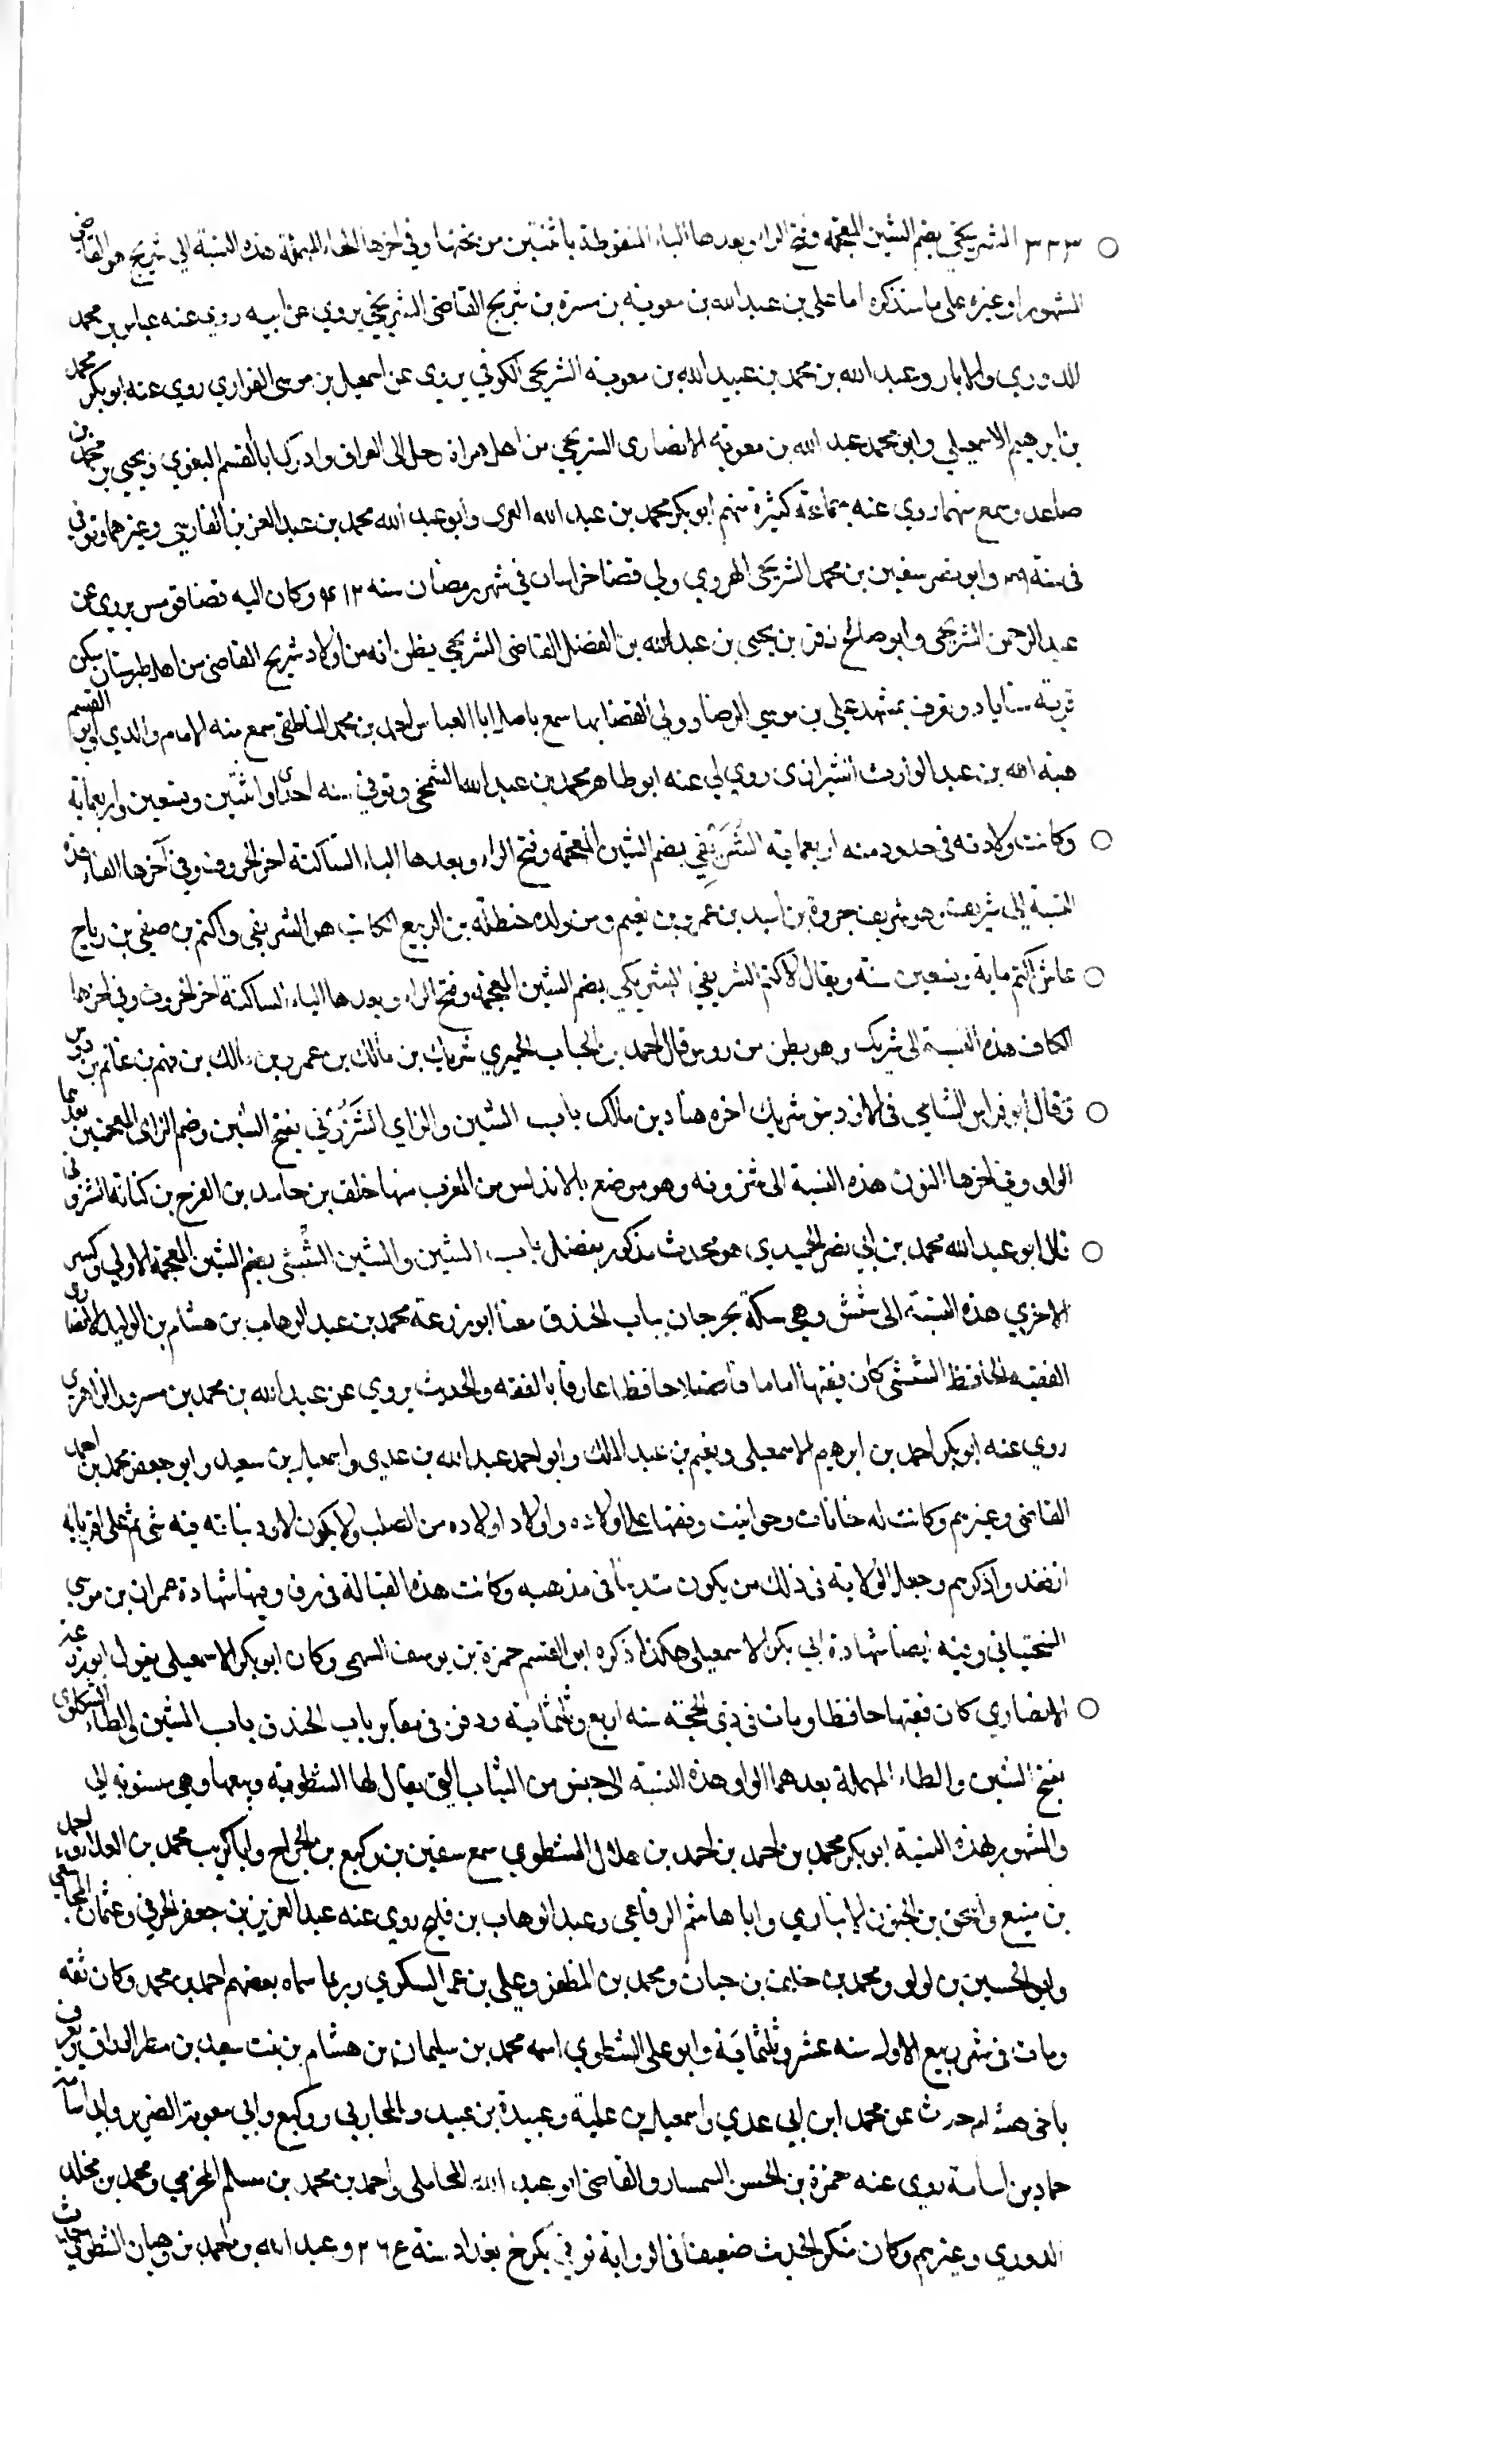 ٣٣٣ الشريحي بضم الشين المعجمة وفتح الراء وبعدها الياء المنقوطة باثنتين من تحتها وفي اخرها الحاء المهملة هذه النسبة الي شريح هو القاضي
المشهور او غيره علي ما سنذكره اما علي بن عبد الله بن معوية بن ميسرة بن شريح القاضي الشريحي يروي عن ابيه روي عنه عباس بن محمد
الدوري والابار وعبد الله بن محمد بن عبيد الله بن معوية الشريحي الكوفي يروي عن اسمعيل بن موسي الفزاري روي عنه ابو بكر محمد
بن ابرهيم الاسمعيلي وابو محمد عبد الله بن معوية الانصاري الشريحي من اهل هراة رحل الي العراق وادرك ابا القسم البغوي ويحيي بن محمد بن
صاعد وسمع منهما روي عنه جماعة كثيرة منهم ابو بكر محمد بن عبد الله العمري وابو عبد الله محمد بن عبد العزيز الفارسي وغيرهما وتوفي
في سنة وابو نصر سفين بن محمد الشريحي الهروي ولي قضا خراسان في شهر رمضان سنه ٤١٣ وكان اليه قضا قومس يروي عن
عبد الرحمن الشريحي وابو صالح زفر بن يحيي بن عبد الله بن الفضل القاضي الشريحي يظن انه من اولاد شريح القاضي من اهل طبرستان سكن
قرية سناباد وتعرف بمشهد علي بن موسي الرضا وولي القضا بها سمع باملا ابا العباس احمد بن محمد الناطقي سمع منه الامام والدي وابو القسم
هبه الله بن عبد الوارث الشيرازي روي لي عنه ابو طاهر محمد بن عبد الله الشحي وتوفي سنه احدي او اثنتين وتسعين واربعماية
وكانت ولادته في حدود سنه اربعماية الشُرَيفي بضم الشين المعجمة وفتح الراء وبعدها الياء الساكنة اخر الحروف وفي آخرها الفاء هذه
النسبة الي شريف وهو شريف جروة بن اسيد بن عمرو بن تميم ومن ولده حنظلة بن الربيع الكاتب هو الشريفي واكثم بن صيفي بن رباح
عاش اكثم ماية وتسعين سنة ويقال لاكثم الشريفي الشريكي بضم الشين المعجمة وفتح الراء وبعدها الياء الساكنة اخر الحروف وفي اخرها
الكاف هذه النسبة الي شريك وهو بطن من دوس قال احمد بن الحباب الحميري شريك بن مالك بن عمرو بن مالك بن فهم بن غانم بن دوس
وقال ابو فراس الشامي في الازد بنو شريك اخوه هناد بن مالك باب الشين والزاي الشَزُوني بفتح الشين وضم الزاي المعجمتين بعدهما
الواو وفي اخرها النون هذه النسبة الي شزونه وهو موضع بالاندلس من المغرب منها خلف بن حامد بن الفرج بن كنانة الشزوني
قال ابو عبد الله محمد بن ابي نصر الحميدي هو محدث مذكور بفضل باب الشين والشين الشُشي بضم الشين المعجمة الاولي وكسر
الاخري هذه النسبة الي شش وهي سكة بجرجان بباب الخندق منها ابو زرعة محمد بن عبد الوهاب بن هشام بن الوليد الانصاري
الفقيه الحافظ الششي كان فقيها اماما فاضلا حافظا عارفا بالفقه والحديث يروي عن عبد الله بن محمد بن مسور الزهري
روي عنه ابو بكر احمد بن ابرهيم الاسمعيلي ونعيم بن عبد الملك وابو احمد عبد الله بن عدي واسمعيل بن سعيد وابو جعفر محمد بن احمد
القاضي وغيرهم وكانت له خانات وحوانيت وقفها علي اولاده واولاد اولاده من الصلب ولا يكون لاولاد بناته فيه شي ثم علي اقربايه
وجعل الولاية في ذلك من يكون متدينا في مذهبه وكانت هذه القبالة في رق وفيها شهادة عمران بن موسي
السختياني وفيه ايضا شهادة ابي بكر الاسمعيلي هكذا ذكره ابو القسم حمزة بن يوسف السهمي وكان ابو بكر الاسمعيلي يقول ابو زرعة
الانصاري كان فقيها حافظا ومات في ذي الحجة سنه اربع وثلثماية ودفن في مقابر باب الخندق باب الشين والطاء الشطوي
بفتح الشين والطاء المهملة بعدهما الواو هذه النسبة الي جنس من الثياب التي يقال لها الشطوية وبيعها وهي منسوبة الي
والمشهور بهذه النسبة ابو بكر محمد بن احمد بن احمد بن هلال الشطوي سمع سفين بن وكيع بن الجراح وابا كريب محمد بن العلاء واحمد
بن منيع واسحق بن الانباري وابا هاشم الرفاعي وعبد الوهاب بن فليح روي عنه عبد العزيز بن جعفر الحرقي وعثمان المجاشعي
وابو الحسين بن لولو ومحمد بن خليف بن حيان ومحمد بن المظفر وعلي بن عمر السكري وربما سماه بعضهم احمد بن محمد وكان ثقه
ومات في شهر ربيع الاول سنه عشر وثلثماية وابو علي الشطوي اسمه محمد بن سليمان بن هشام بن بنت سعيد بن مطر الوراق ويعرف
باخي هشام حدث عن محمد ابن ابي عدي واسمعيل بن علية وعبيدة بن عبيد والمحاربي ووكيع وابي معوية الضرير وابي اسامة
حماد بن اسامة روي عنه حمزة بن الحسن السمسار والقاضي ابو عبد الله المحاملي واحمد بن محمد بن مسلم المخرمي ومحمد بن مخلد
الدوري وغيرهم وكان منكر الحديث ضعيفا في الرواية توفي بكرخ بغداد سنة وعبد الله بن احمد بن وهبان الشطوي حدث